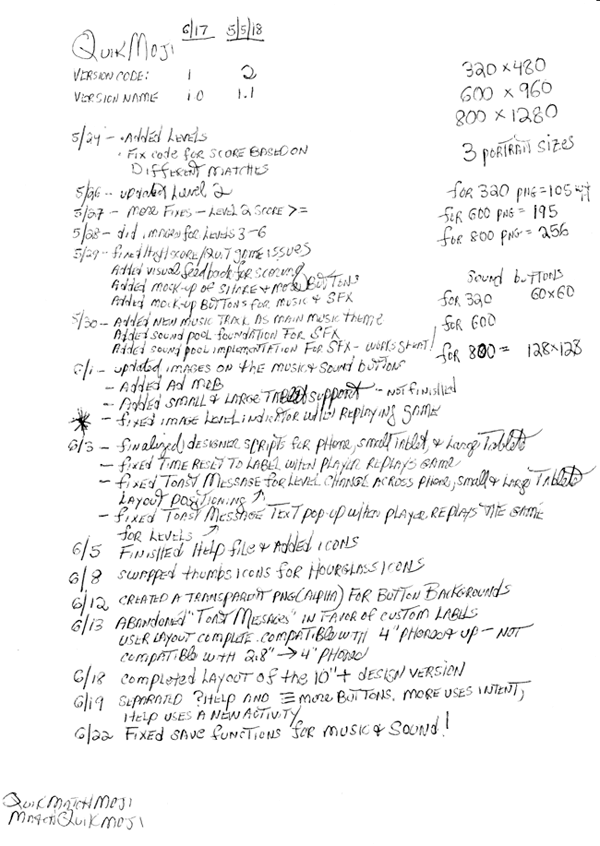 6/17 5/5/18
QuikMoji
VERSION CODE: 1 2
VERSION NAME 1.0 1.1
320 x 480
600 x 960
800 x 1280
3 PORTRAIT SIZES
5/24 - · Added Levels
· Fix code for SCORE BASED ON
DIFFERENT MATCHES
5/26 - updated Level 2
5/27 - more Fixes - Level 2 SCORE >=
5/28 - did images for Levels 3-6
5/29 - fixed High score/Quit game issues
Added visual feedback for scoring
Added mock-up of SHARE & more BUTTONS
Added mock-up BUTTONS for music & SFX
5/30 - Added NEW MUSIC TRACK AS MAIN MUSIC THEME
Added SOUND POOL foundation FOR SFX
Added SOUND POOL IMPLEMENTATION FOR SFX - WORKS GREAT!
for 320 png = 105
for 600 png = 195
for 800 png = 256
Sound buttons
for 320 60x60
for 600
for 800 = 128x128
6/1 - updated images on the music & sound button
- Added Ad MOB
- Added SMALL & LARGE TABLET support - not finished
* - fixed IMAGE LEVEL INDICATOR WHEN REPLAYING GAME
6/3 - finalized designer scripts for phone, small tablet, & Large Tablets
- fixed TIME RESET TO LABEL WHEN PLAYER REPLAYS GAME
- fixed TOAST MESSAGE FOR LEVEL CHANGE ACROSS phone, small & Large Tablets
LAYOUT POSITIONING
- fixed TOAST MESSAGE TEXT POP-UP WHEN PLAYER REPLAYS THE GAME
FOR LEVELS
6/5 FINISHED HELP file & ADDED ICONS
6/8 SWAPPED thumbs ICONS for HOURGLASS ICONS
6/12 CREATED A TRANSPARENT PNG (ALPHA) FOR BUTTON BACKGROUNDS
6/13 ABANDONED "TOAST MESSAGES" IN FAVOR OF CUSTOM LABELS
USER LAYOUT COMPLETE. COMPATIBLE WITH 4" PHONES & UP - NOT
COMPATIBLE WITH 2.8" → 4" PHONES
6/18 completed LAYOUT of the 10"+ DESIGN VERSION
6/19 SEPARATED ?HELP AND ≡ MORE BUTTONS. MORE USES INTENT,
HELP USES A NEW ACTIVITY
6/22 FIXED SAVE FUNCTIONS for MUSIC & SOUND!
QuikMatchMoji
MatchQuikMoji